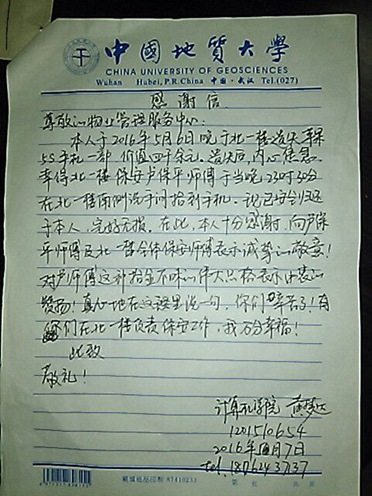 中國地質大學
CHINA UNIVERSITY OF GEOSCIENCES
Wuhan Hubei, P.R.China 中国·武汉 Tel.(027)
感谢信
尊敬的物业管理服务中心:
本人于2016年5月6日晚于北一楼遗失苹果
5S手机一部,价值四千余元。遗失后,内心焦急。
幸得北一楼保安卢保平师傅于当晚23时30分
在北一楼南侧洗手间拾到手机,现已安全归还
于本人,完好无损。在此,本人十分感谢,向卢保
平师傅及北一楼全体保安师傅表示诚挚的敬意!
对卢师傅这种拾金不昧的伟大品格表示由衷的
赞扬!真心地在这里说一句,你们辛苦了!有
你们在北一楼负责保安工作,我万分幸福!
此致
敬礼!
计算机学院 黄
1201510654
2016年5月7日
Tel. 18762437137